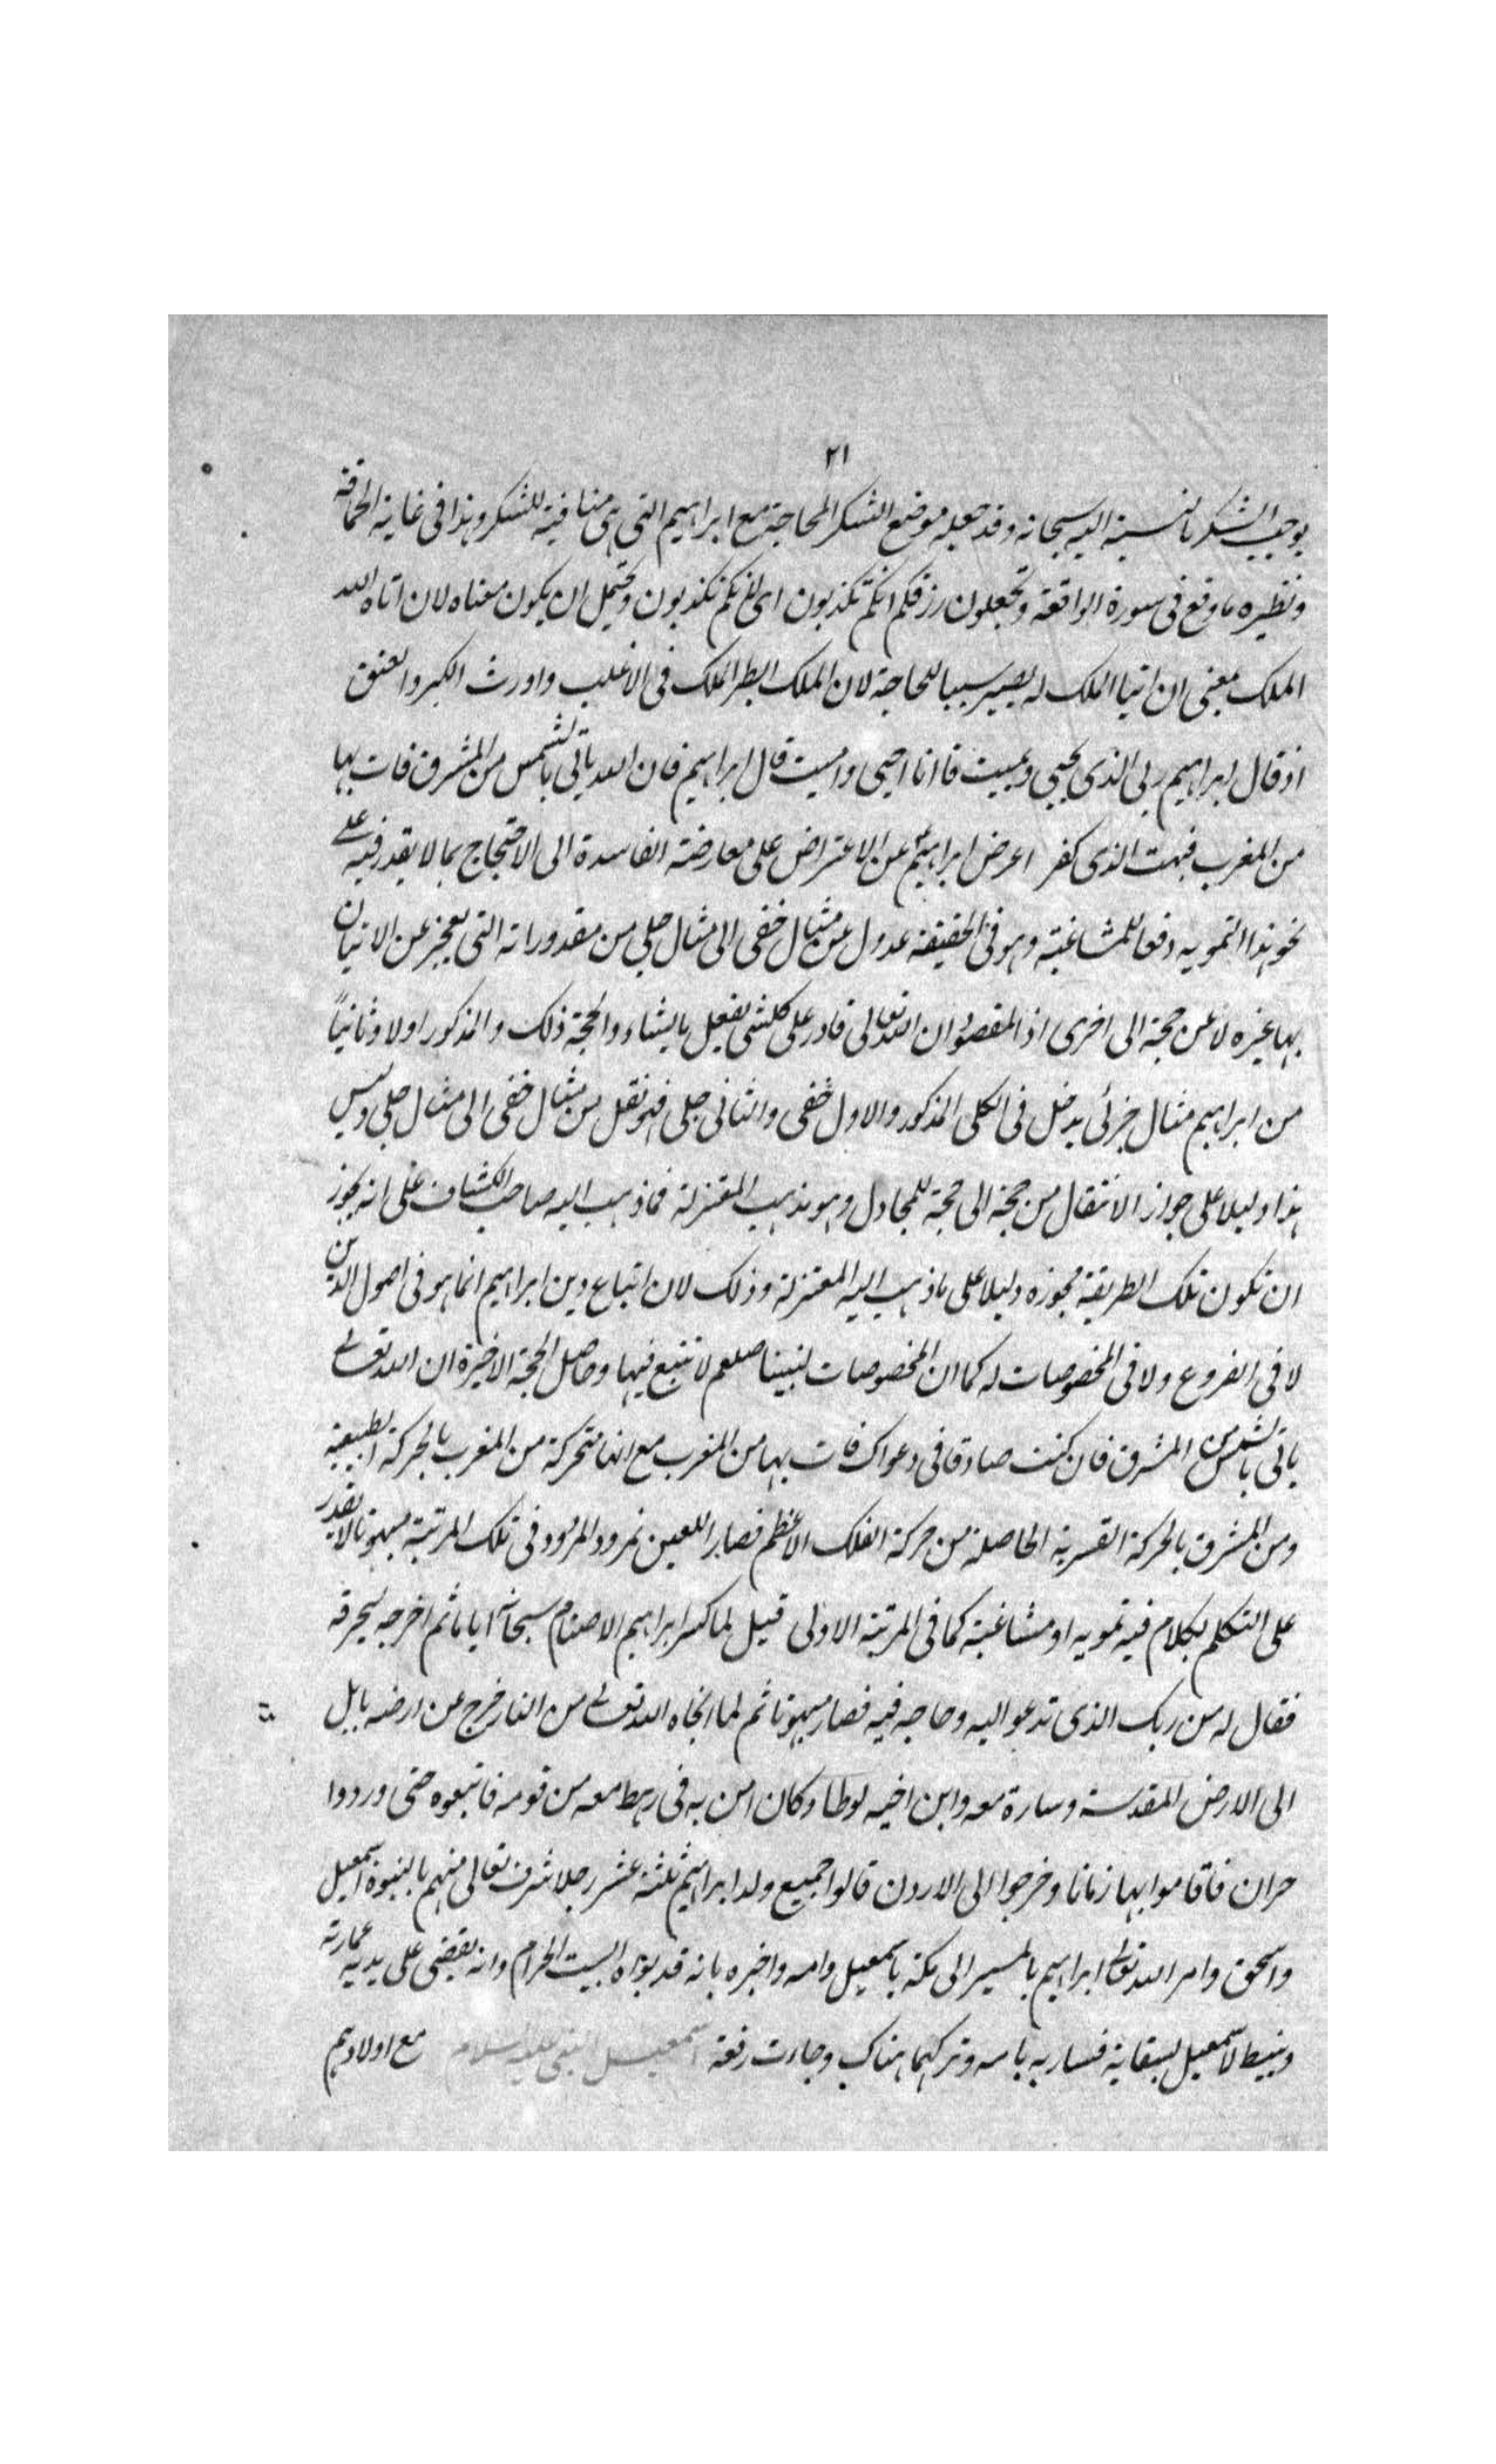 ٢١
يوجب الشكر بالنسبة اليه سبحانه وقد جعله موضع الشكر المحاجة مع ابراهيم التى هى منافية للشكر وهذا فى غاية الحماقة
ونظيره ما وقع فى سورة الواقعة وتجعلون رزقكم انكم تكذبون اى تكذبون ويحتمل ان يكون معناه لان اتاه الله
الملك بمعنى ان ايتاء الملك له يصير سببا للمحاجة لان الملك ابطر الملك فى الاغلب واورث الكبر والعتو
اذ قال ابراهيم ربى الذى يحيى ويميت قا انا احيى واميت قال ابراهيم فان الله ياتى بالشمس من المشرق فات بها
من المغرب فبهت الذى كفر اعرض ابراهيم عن الاعتراض على معارضته الفاسدة الى الاحتجاج بما لا يقدر فيه على
نحو هذا التمويه دفعا للمشاغبة وهو فى الحقيقة عدول عن مثال خفى الى مثال جلى من مقدوراته التى يعجز عن الاتيان
بها غيره لا عن حجة الى اخرى اذ المقصود ان الله تعالى قادر على كلشى يفعل ما يشاء والحجة ذلك والمذكور اولا وثانيًا
من ابراهيم مثال جزئى يدخل فى الكلى المذكور والاول خفى والثانى جلى فهو نقل من مثال خفى الى مثال جلى وليس
هذا دليلا على جواز الانتقال من حجة الى حجة للمجادل وهو مذهب المعتزلة فما ذهب اليه صاحب الكشاف على انه يجوز
ان تكون تلك الطريقة مجوزه دليلا على ما ذهب اليه المعتزلة وذلك لان اتباع دين ابراهيم انما هو فى اصول الدين
لا فى الفروع ولا فى المخصوصات له كما ان المخصوصات لنبينا صلعم لا نتبع فيها وحاصل الحجة الاخيرة ان الله تعالى
ياتى بالشمس من المشرق فان كنت صادقا فى دعواك فات بها من المغرب مع انها متحركة من المغرب بالحركة الطبيعية
ومن المشرق بالحركة القسرية الحاصلة من حركة الفلك الاعظم فصار اللعين نمرود المردود فى تلك المرتبة مبهوتا لا يقدر
على التكلم بكلام فيه تمويه او مشاغبة كما فى المرتبة الاولى قيل لما كسر ابراهيم الاصنام اياما ثم اخرجه ليحرقه
فقال له من ربك الذى تدعو اليه وحاجه فيه فصار مبهوتا ثم لما انجاه الله تعالى من النار خرج عن ارضه بابل
الى الارض المقدسة وسارة معه وابن اخيه لوطا وكان امن به فى رهط معه من قومه فاتبعوه حتى وردوا
حران فاقاموا بها زمانا وخرجوا الى الاردن قالوا جميع ولد ابراهيم ثلثة عشر رجلا شرف تعالى منهم بالنبوة اسمعيل
واسحق وامر الله تعالى ابراهيم بالمسير الى مكة باسمعيل وامه واخبره بانه قد بوّاه البيت الحرام وانه يقضى على يديه عمارته
وينبط لاسمعيل سقاية فسار به بامه وتركهما هناك وجاءت رفقة اسمعيل النبى عليه السلام مع اولادهم